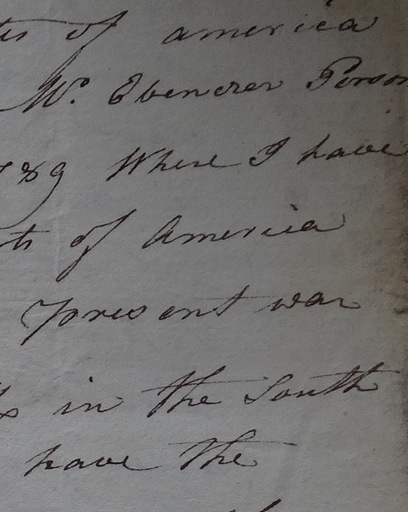 ts of america
Mr. Ebenezer Person
789 Where I have
ts of America
present war
in the South
have the